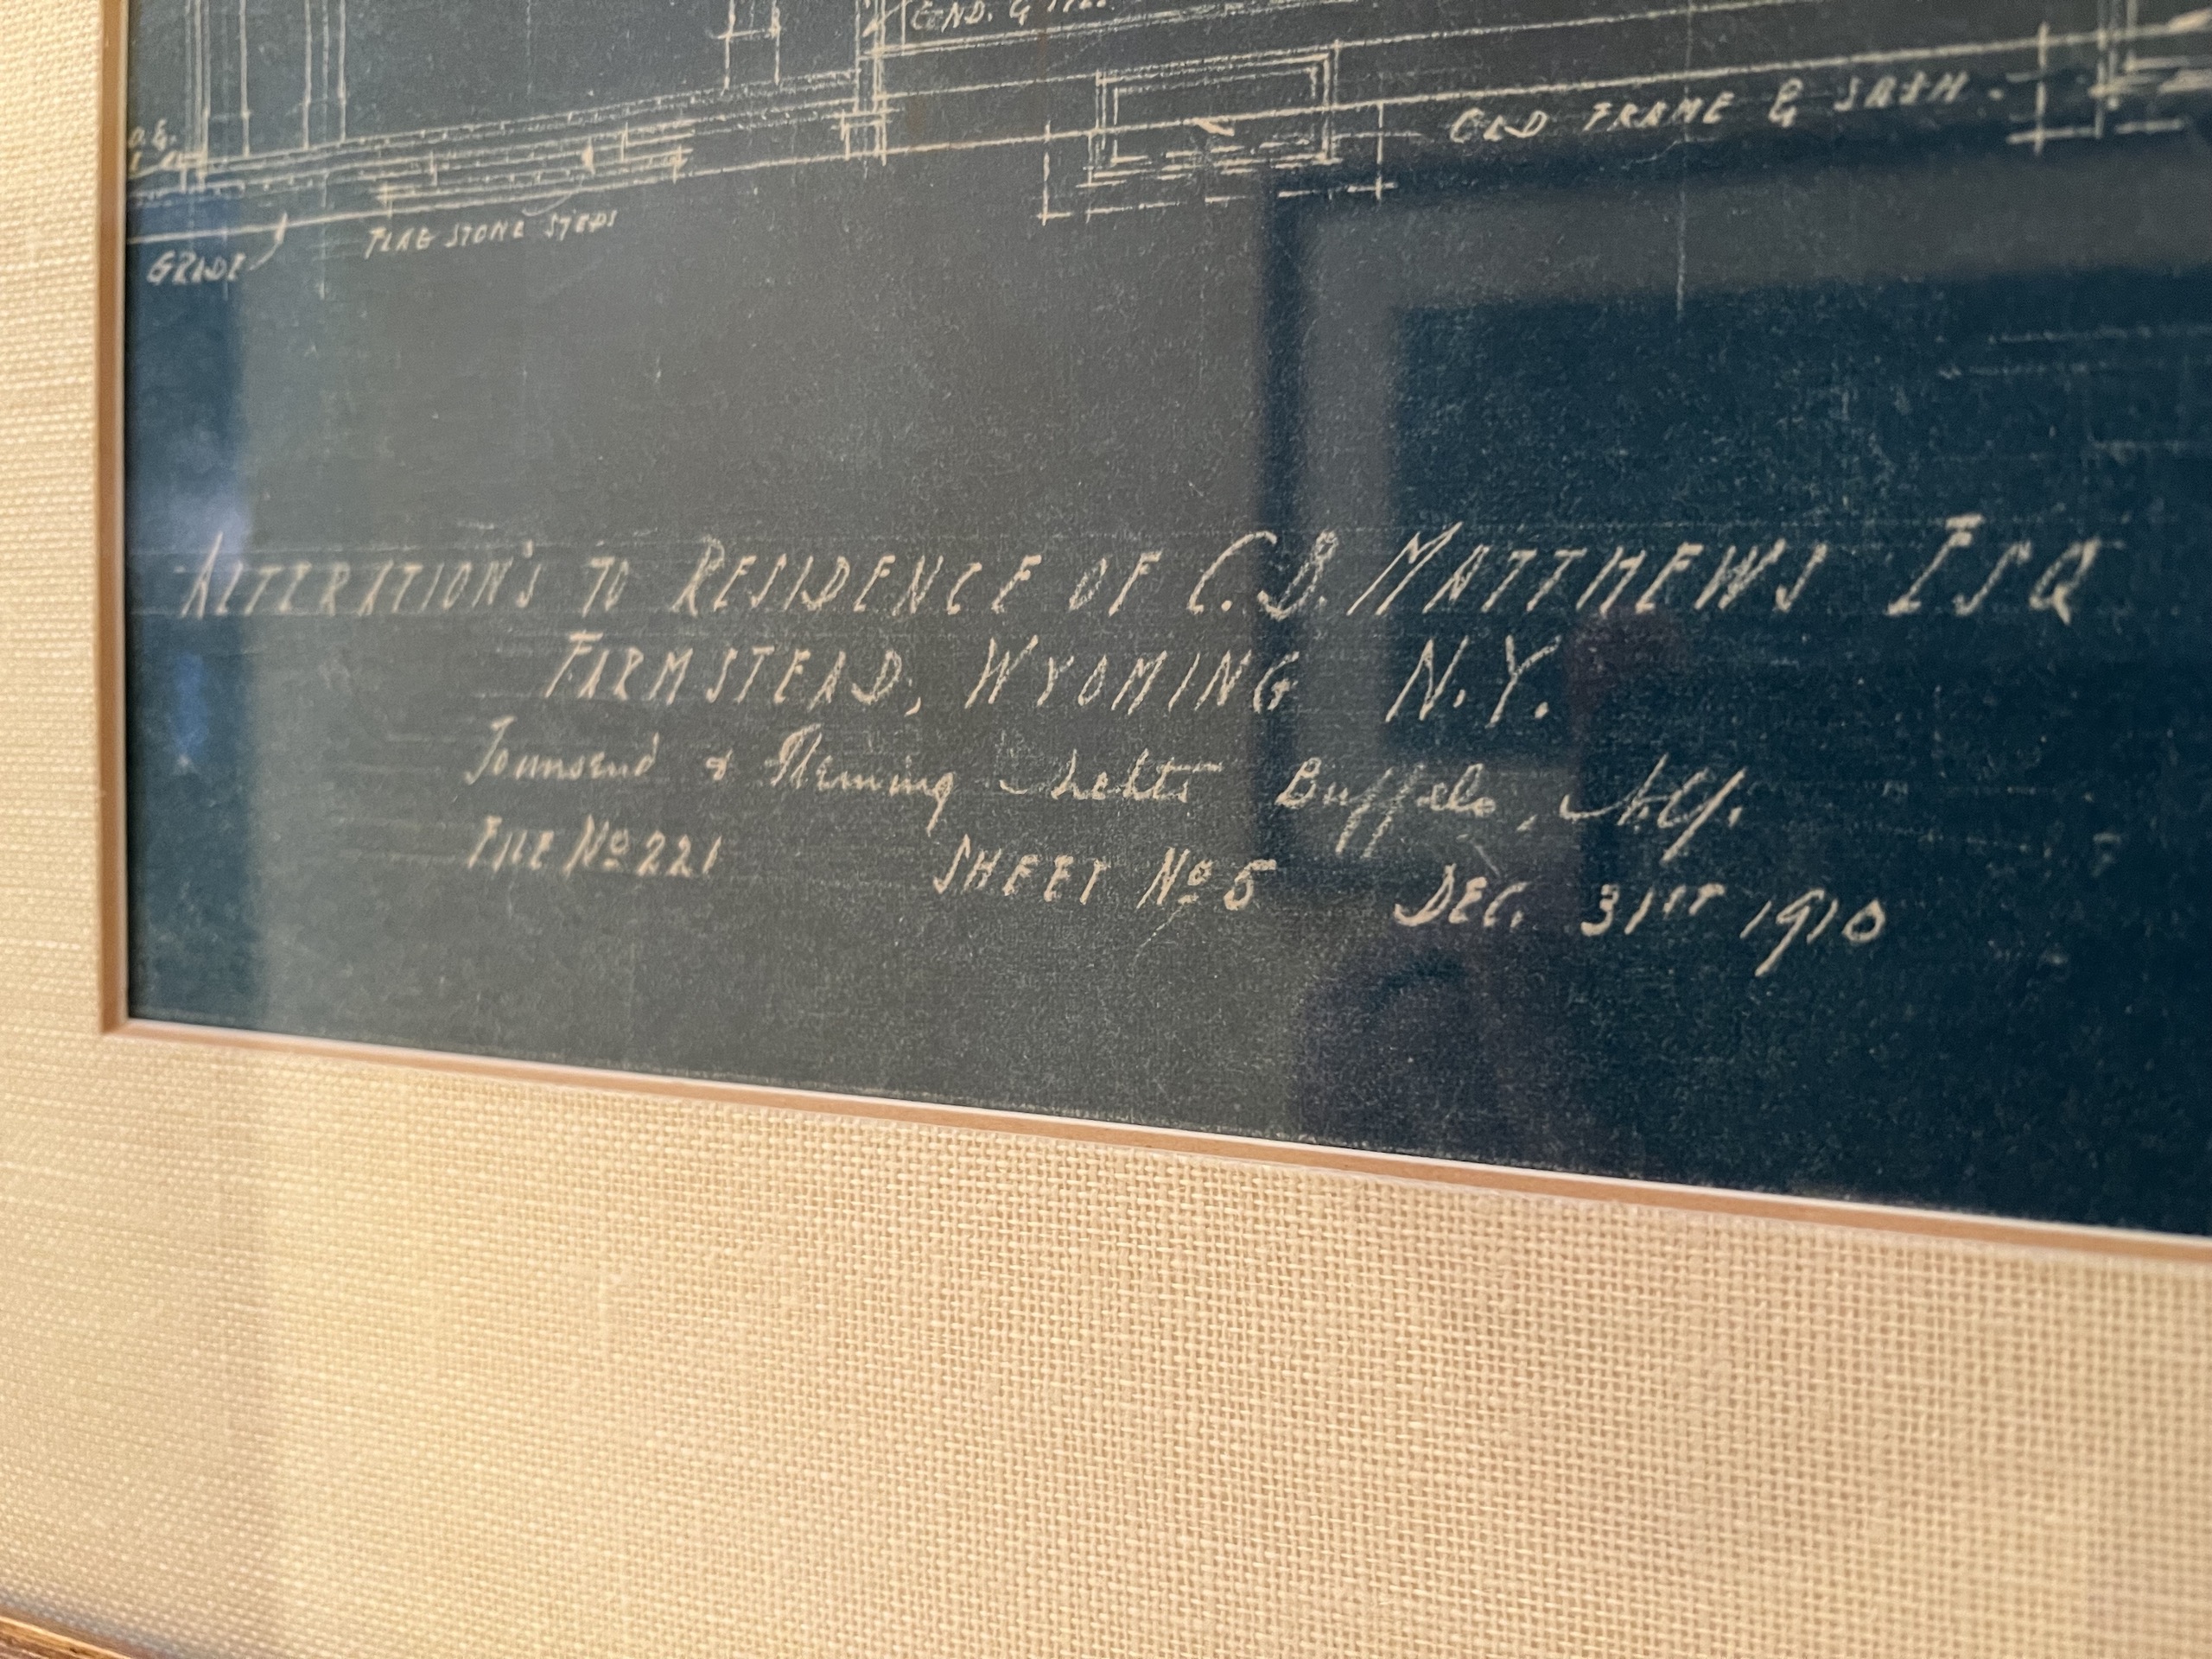 COND. &
OLD FRAME & SASH.
FLAG STONE STEPS
GRADE
ALTERATION'S TO RESIDENCE OF C. B. MATTHEWS ESQ
FARMSTEAD, WYOMING N.Y.
Townsend & Fleming Archts Buffalo, N.Y.
FILE No 221 SHEET No 5 DEC. 31ST 1910